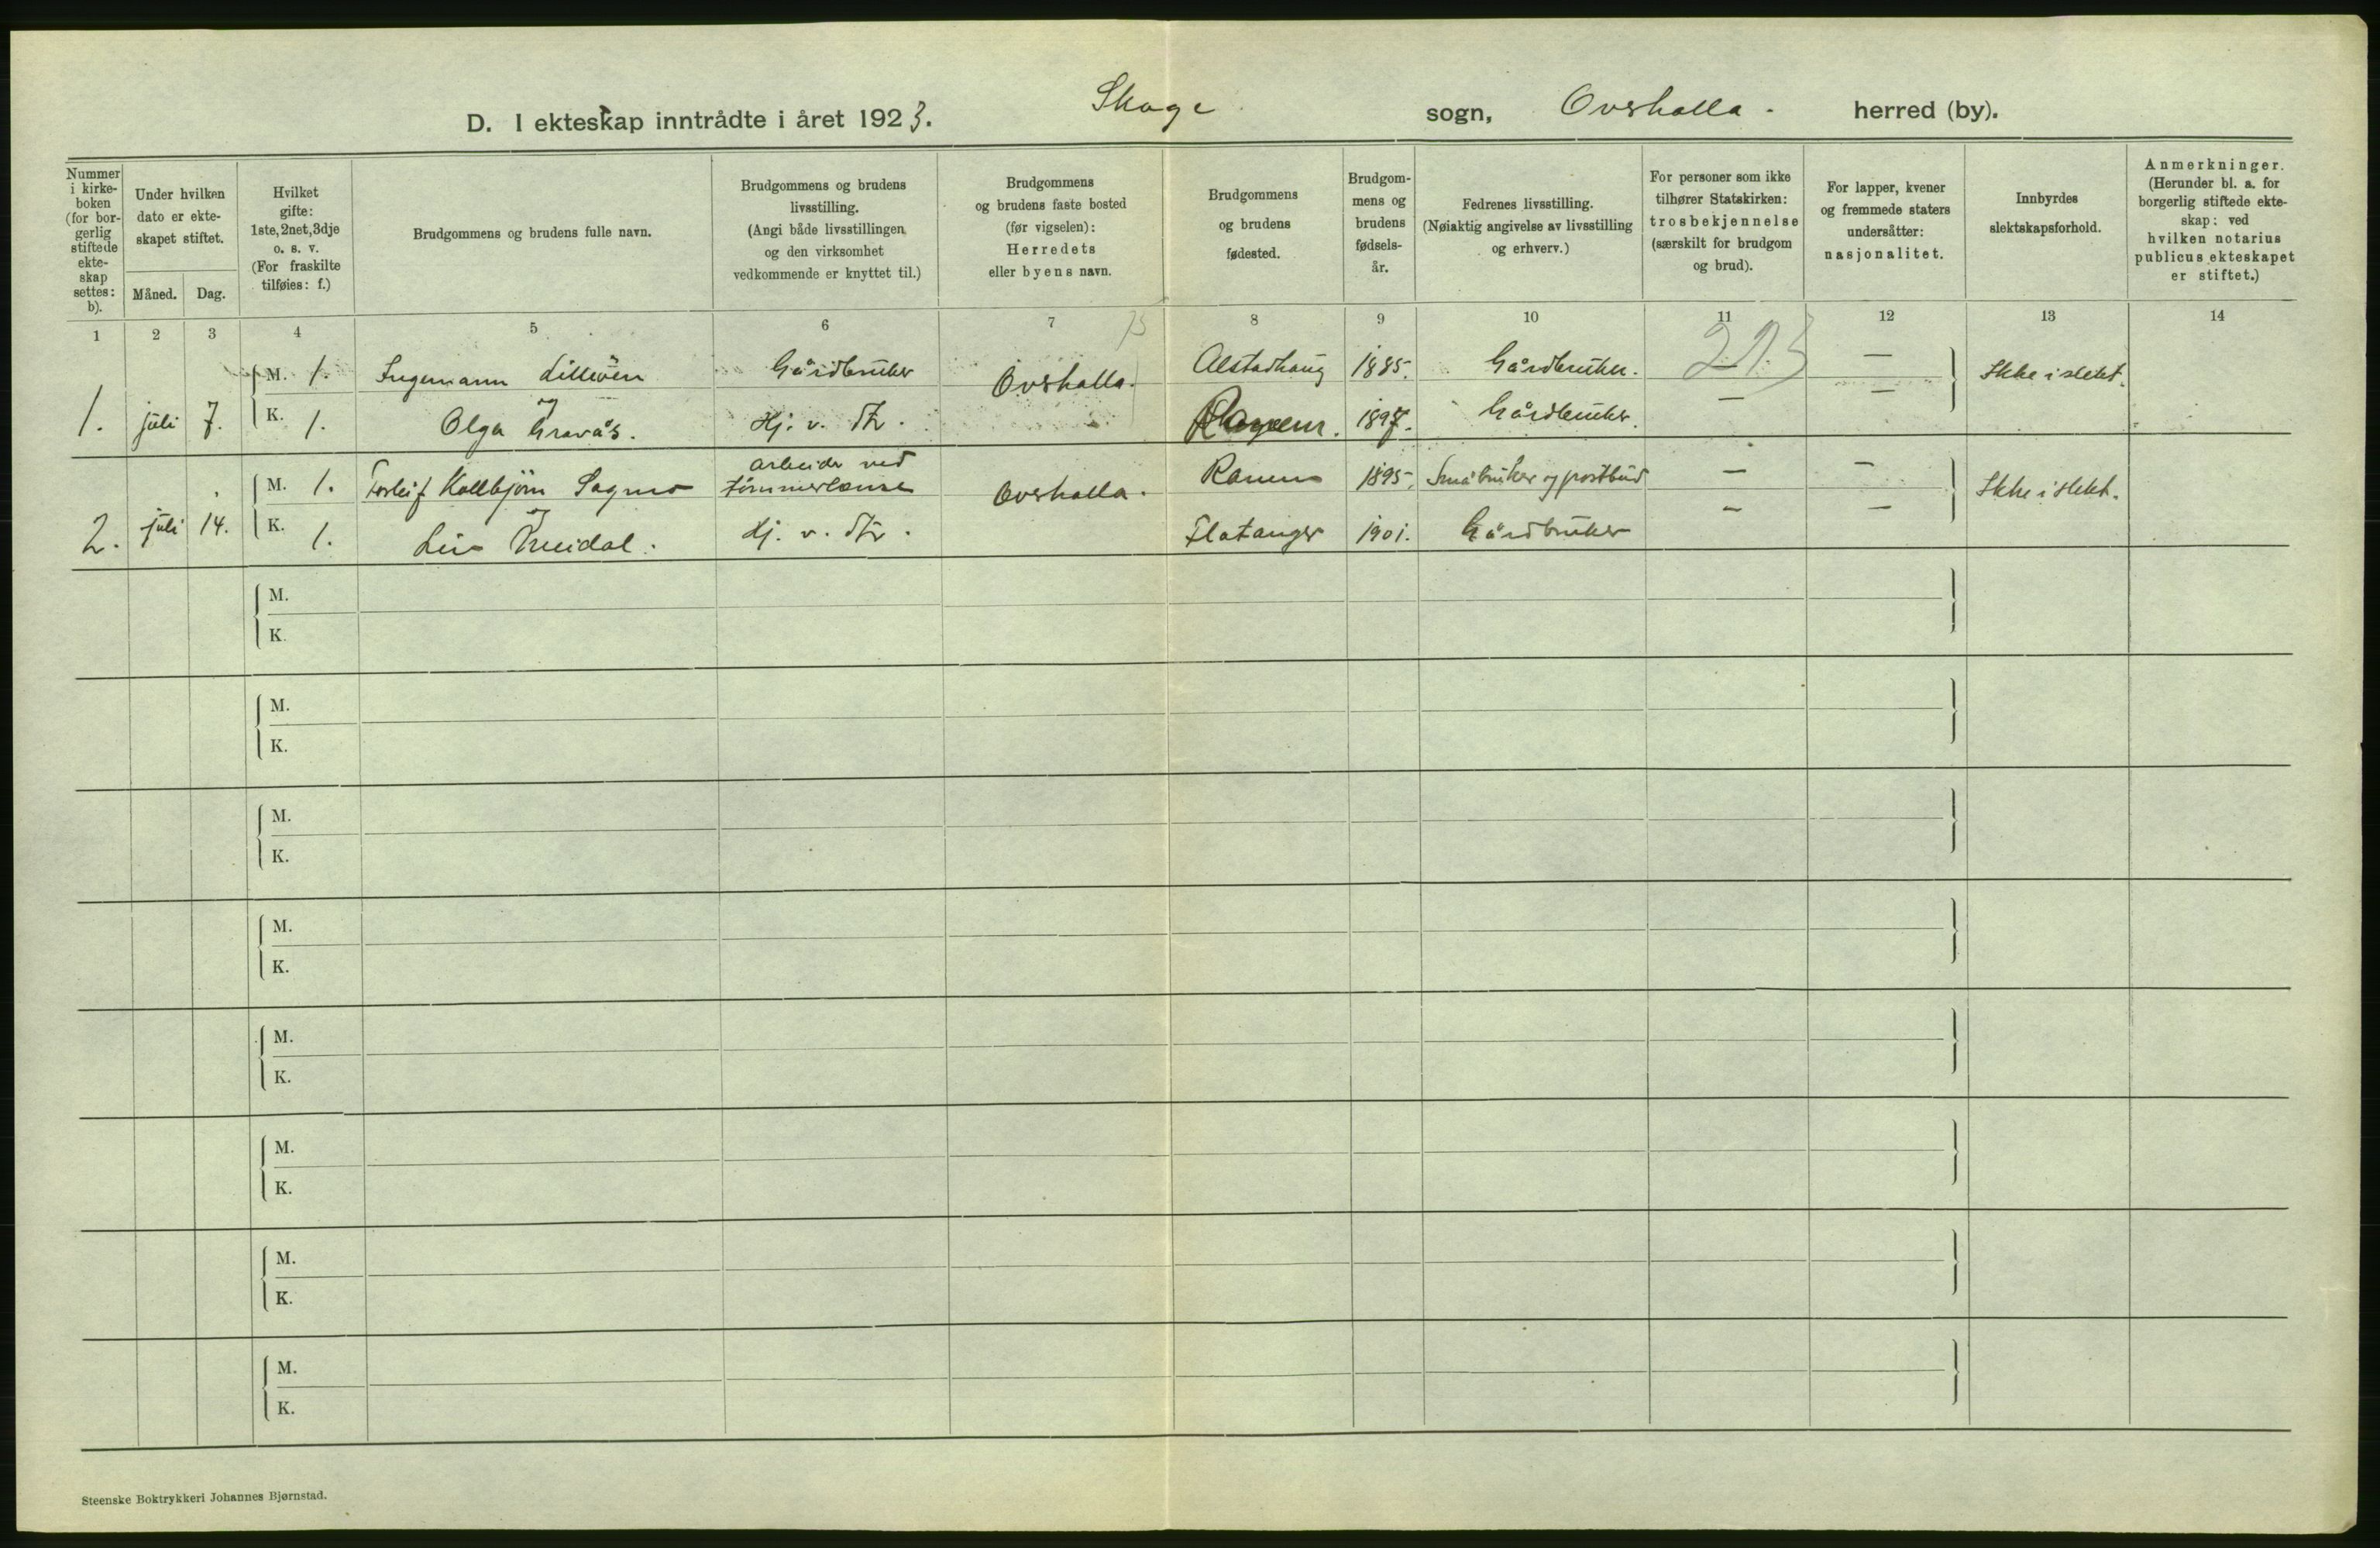 D. I ekteskap inntrådte i året 1923. Skage sogn, Overhalla. herred (by).
Nummer i kirkeboken (for borgerlig stiftede ekteskap settes: b).
Under hvilken dato er ekteskapet stiftet.
Måned. Dag.
Hvilket gifte: 1ste, 2net, 3dje o. s. v. (For fraskilte tilføies: f.)
Brudgommens og brudens fulle navn.
Brudgommens og brudens livsstilling. (Angi både livsstillingen og den virksomhet vedkommende er knyttet til.)
Brudgommens og brudens faste bosted (før vigselen): Herredets eller byens navn.
Brudgommens og brudens fødested.
Brudgommens og brudens fødselsår.
Fedrenes livsstilling. (Nøiaktig angivelse av livsstilling og erhverv.)
For personer som ikke tilhører Statskirken: trosbekjennelse (særskilt for brudgom og brud).
For lapper, kvener og fremmede staters undersåtter: nasjonalitet.
Innbyrdes slektskapsforhold.
Anmerkninger. (Herunder bl. a. for borgerlig stiftede ekteskap: ved hvilken notarius publicus ekteskapet er stiftet.)
1 2 3 4 5 6 7 8 9 10 11 12 13 14
M. 1. Ingemann Lilleöen Gårdbruker Overhalla. Alstadhaug 1885. Gårdbruker. — Ikke i slekt.
og
1. juli 7. K. 1. Olga Gravås. Hj. v. 1897. Gårdbruker. — —
M. 1. Torleif Kolbjörn Sagmo arbeider ved tömmerlense Overhalla. Ranem 1895. Småbruker og postbud — — Ikke i slekt.
og
2. juli 14. K. 1. Hj. v. Flatanger 1901. Gårdbruker — —
M.
K.
M.
K.
M.
K.
M.
K.
M.
K.
M.
K.
M.
K.
M.
K.
Steenske Boktrykkeri Johannes Bjørnstad.